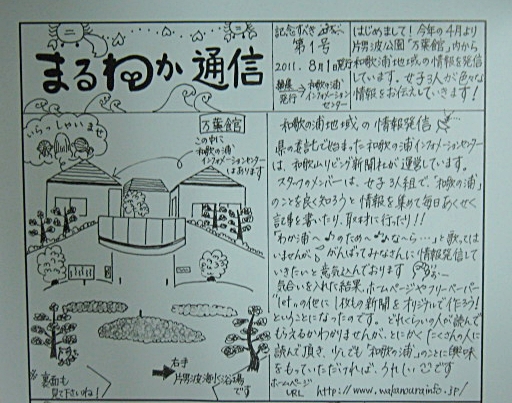 まるわか通信
記念すべき
第1号
2011.8月1日発行
編集
発行
和歌の浦
インフォメーション
センター
はじめまして!今年の4月より
片男波公園「万葉館」内から
和歌浦地域の情報を発信
しています。女子3人が色々な
情報をお伝えしていきます!
いらっしゃいませ
万葉館
この中に
和歌の浦
インフォメーションセンター
はあります
右手
片男波海水浴場
です
※裏面も
見て下さいね!
和歌の浦地域の情報発信
県の委託で始まった和歌の浦インフォメーションセンター
は、和歌山リビング新聞社が運営しています。
スタッフのメンバーは、女子3人組で、「和歌の浦」
のことを良く知ろうと情報を集めて毎日あくせく
記事を書いたり、取材に行ったり!!
“わか浦へ♪のためへ♪んなら…♪と歌っては
いませんが、がんばってみなさんに情報発信して
いきたいと意気込んでおります
気合いを入れた結果、ホームページやフリーペーパー
の他に1枚もの新聞をオリジナルで作ろう!
ということになったのです。どれくらいの人が読んで
もらえるかわかりませんが、とにかくたくさんの人に
読んで頂き、少しでも“和歌の浦”のことに興味
をもっていただければ、うれしいです
ホームページ
URL http://www.wakanourainfo.jp/